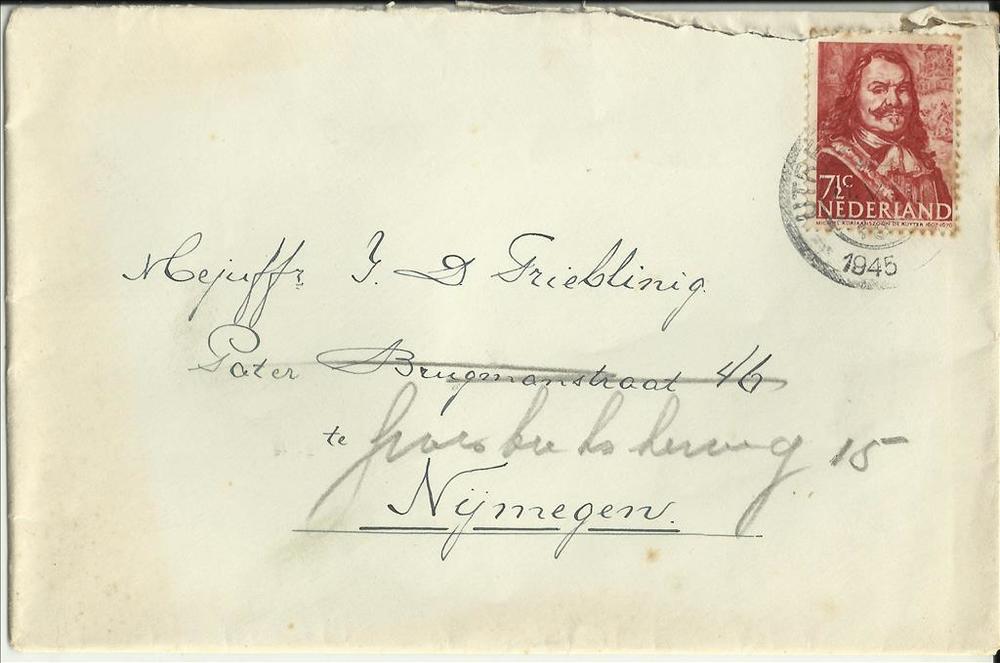 7½c
NEDERLAND
MICHIEL ADRIAANSZOON DE RUYTER 1607-1676
UTR
1945
Mejuffr. J. D Frieblinig.
Pater Brugmanstraat 46
te
15
Nijmegen.